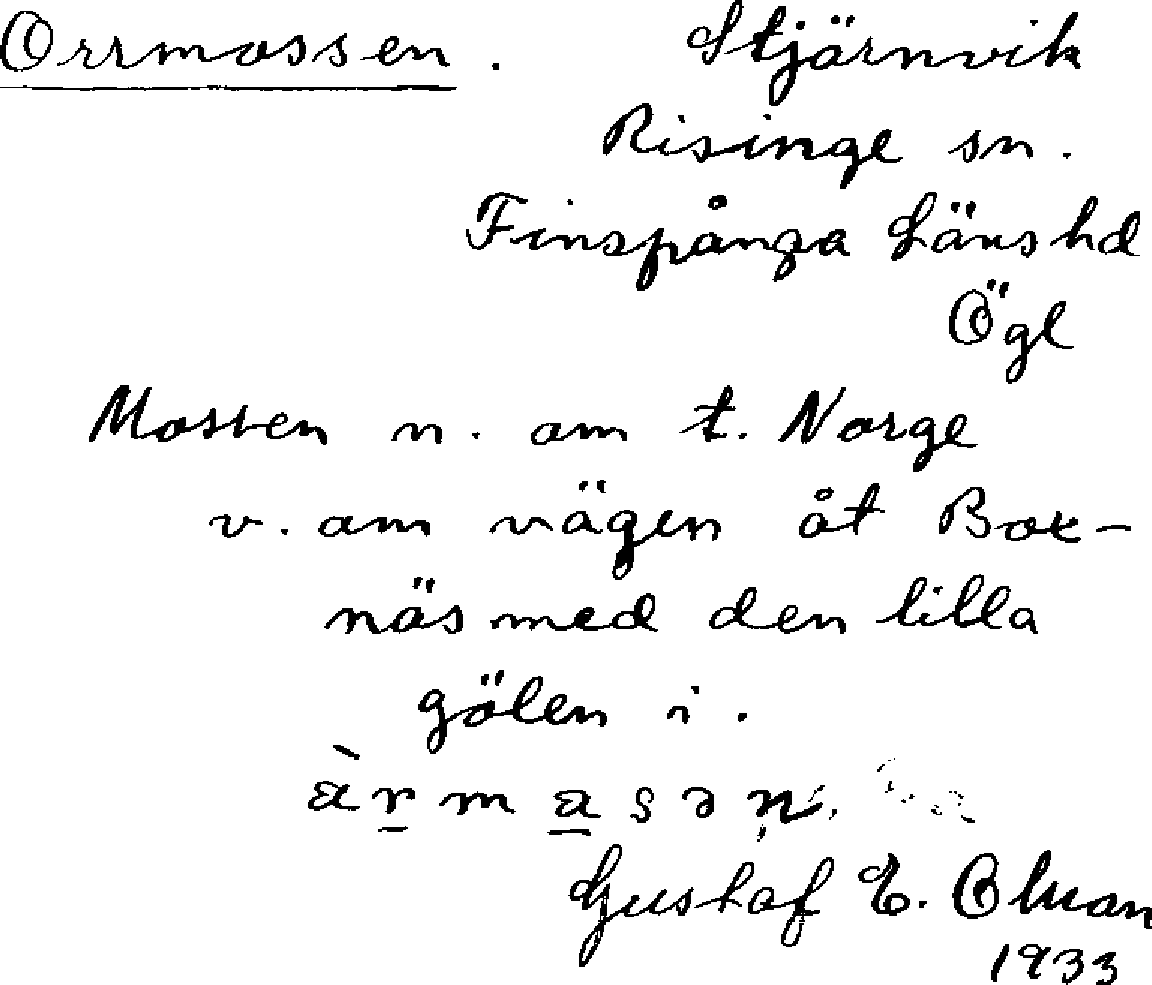 Orrmossen. Stjärnvik
Risinge sn.
Finspånga Länshd
Ögl
Mossen n. om t. Norge
v. om vägen åt Bok-
näs med den lilla
gölen i.
Gustaf E.
1933